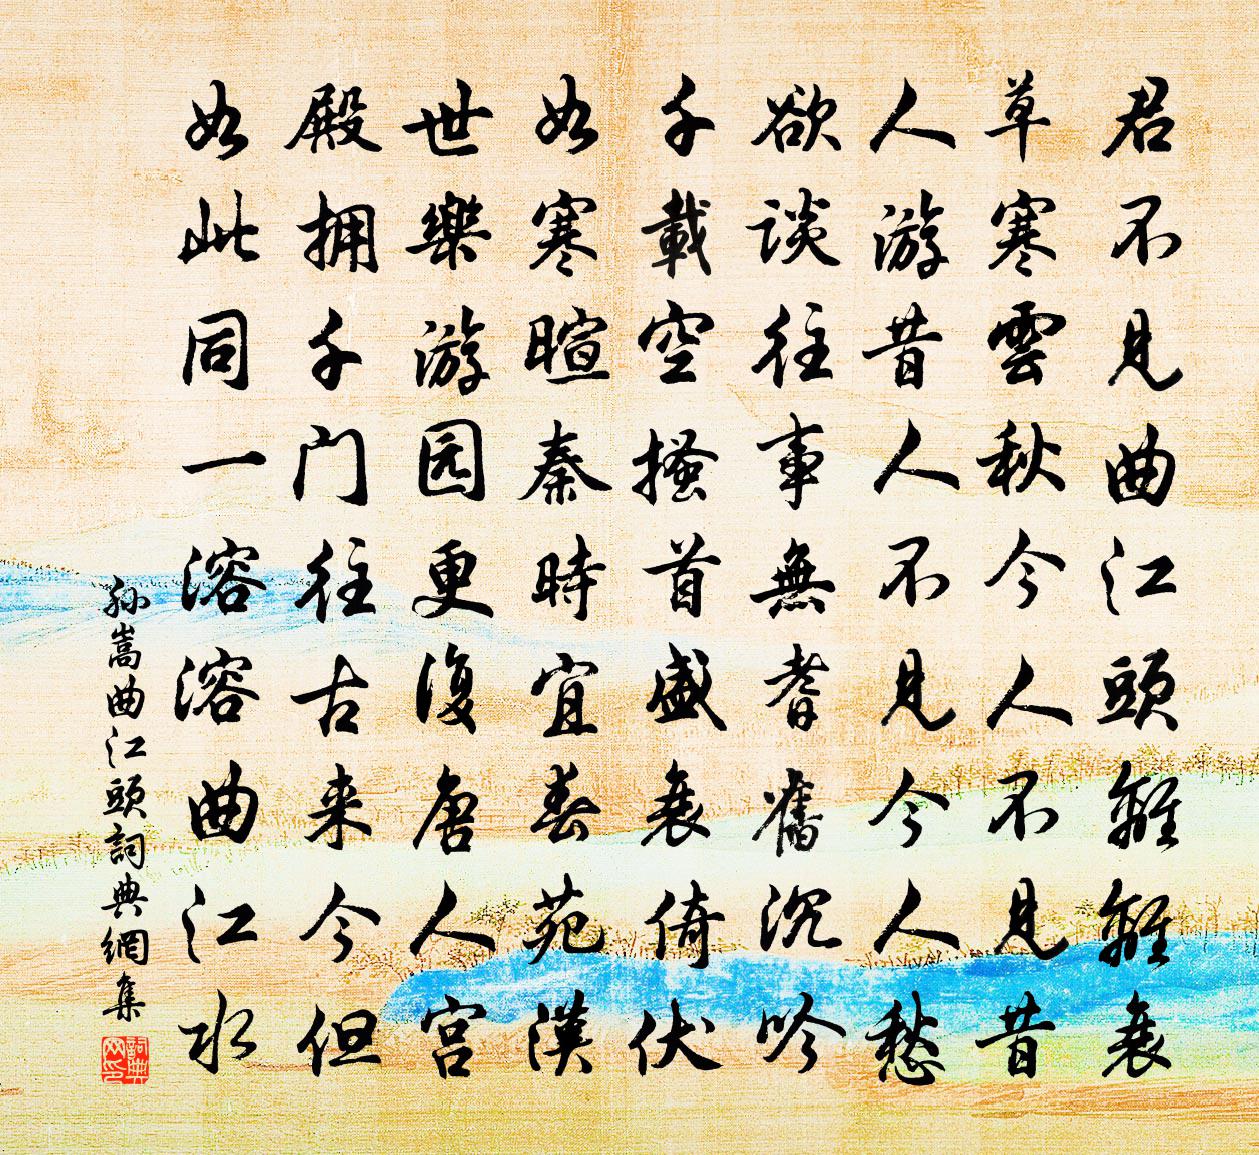 君不見曲江頭離離衰
草寒雲秋今人不見昔
人游昔人不見今人愁
欲談往事無耆舊沉吟
千載空搔首盛衰倚伏
如寒暄秦時宜春苑漢
世樂游园更復唐人宮
殿拥千门往古来今但
如此同一溶溶曲江水
孙嵩曲江頭詞典網集
詞典网印